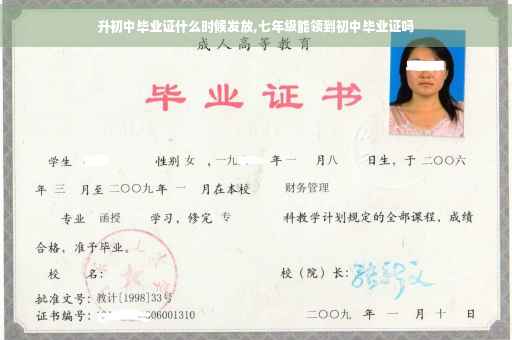 升初中毕业证什么时候发放,七年级能领到初中毕业证吗
成人高等教育
毕业证书
学生 性别 女 ,一九 年 一 月八 日生，于 二〇〇六
年 三 月至 二〇〇九 年 一 月在本校 财务管理
专业 函授 学习，修完 专 科教学计划规定的全部课程，成绩
合格，准予毕业。
校 名： 校（院）长：
批准文号：教计[1998]33号
证书编号： 06001310 二〇〇九 年 一 月 十 日